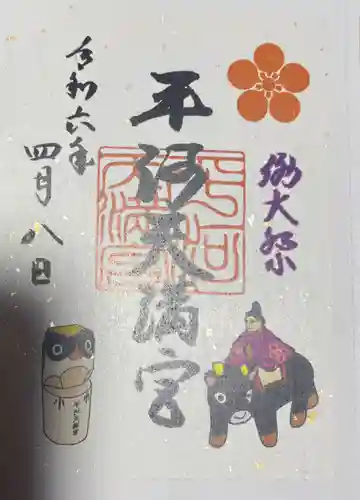 例大祭
平河天満宮
令和六年
四月八日